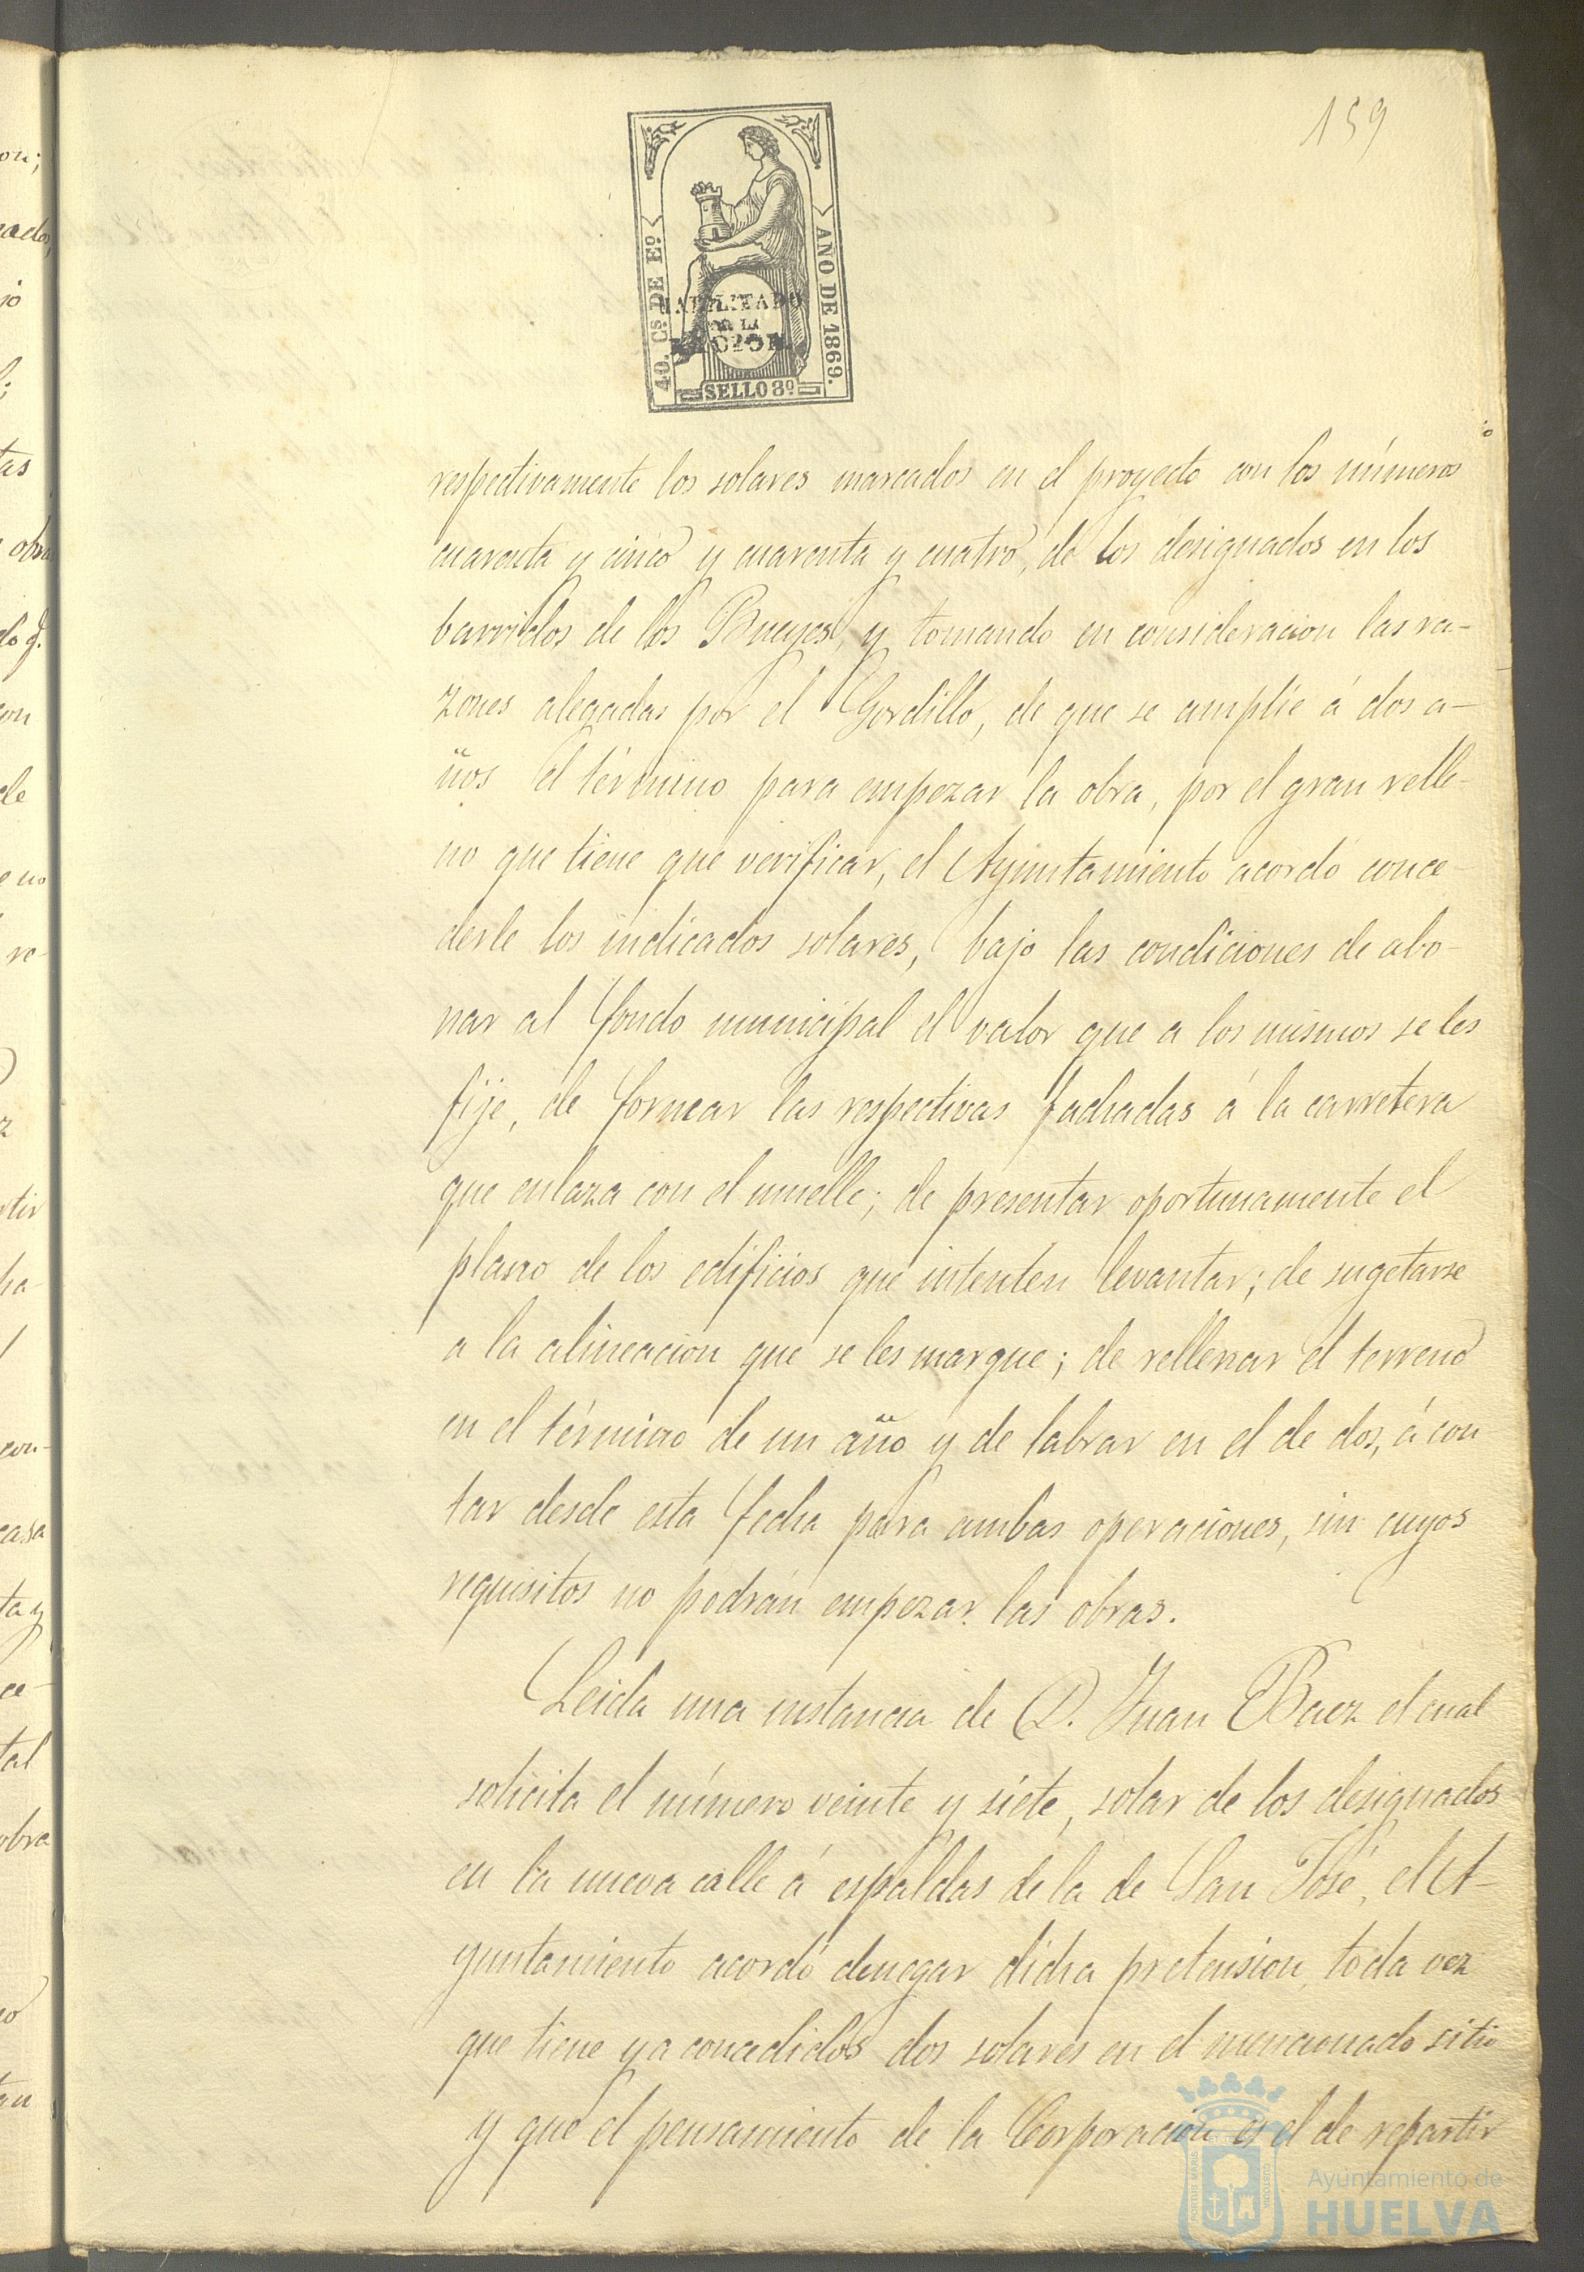 159
40. Cs. DE Eo.
AÑO DE 1869.
HABILITADO
POR LA
NACION.
SELLO 3º
respectivamente los solares marcados en el proyecto con los números
cuarenta y cinco y cuarenta y cuatro, de los designados en los
barridos de los Bueyes, y tomando en consideracion las ra-
zones alegadas por el Gordillo, de que se amplie á dos a-
ños el término para empezar la obra, por el gran relle-
no que tiene que verificar, el Ayuntamiento acordó conce-
derle los indicados solares, bajo las condiciones de abo-
nar al fondo municipal el valor que a los mismos se les
fije, de formar las respectivas fachadas á la carretera
que enlaza con el muelle; de presentar oportunamente el
plano de los edificios que intenten levantar; de sugetarse
a la alineacion que se les marque; de rellenar el terreno
en el término de un año y de labrar en el de dos, á con
tar desde esta fecha para ambas operaciones, sin cuyos
requisitos no podrán empezar las obras.
Leida una instancia de D. Juan Baez el cual
solicita el número veinte y siete, solar de los designados
en la nueva calle á espaldas de la de San José, el A-
yuntamiento acordó denegar dicha pretension, toda vez
que tiene ya concedidos dos solares en el mencionado sitio
y que el pensamiento de la Corporacion es el de repartir
Ayuntamiento de
HUELVA